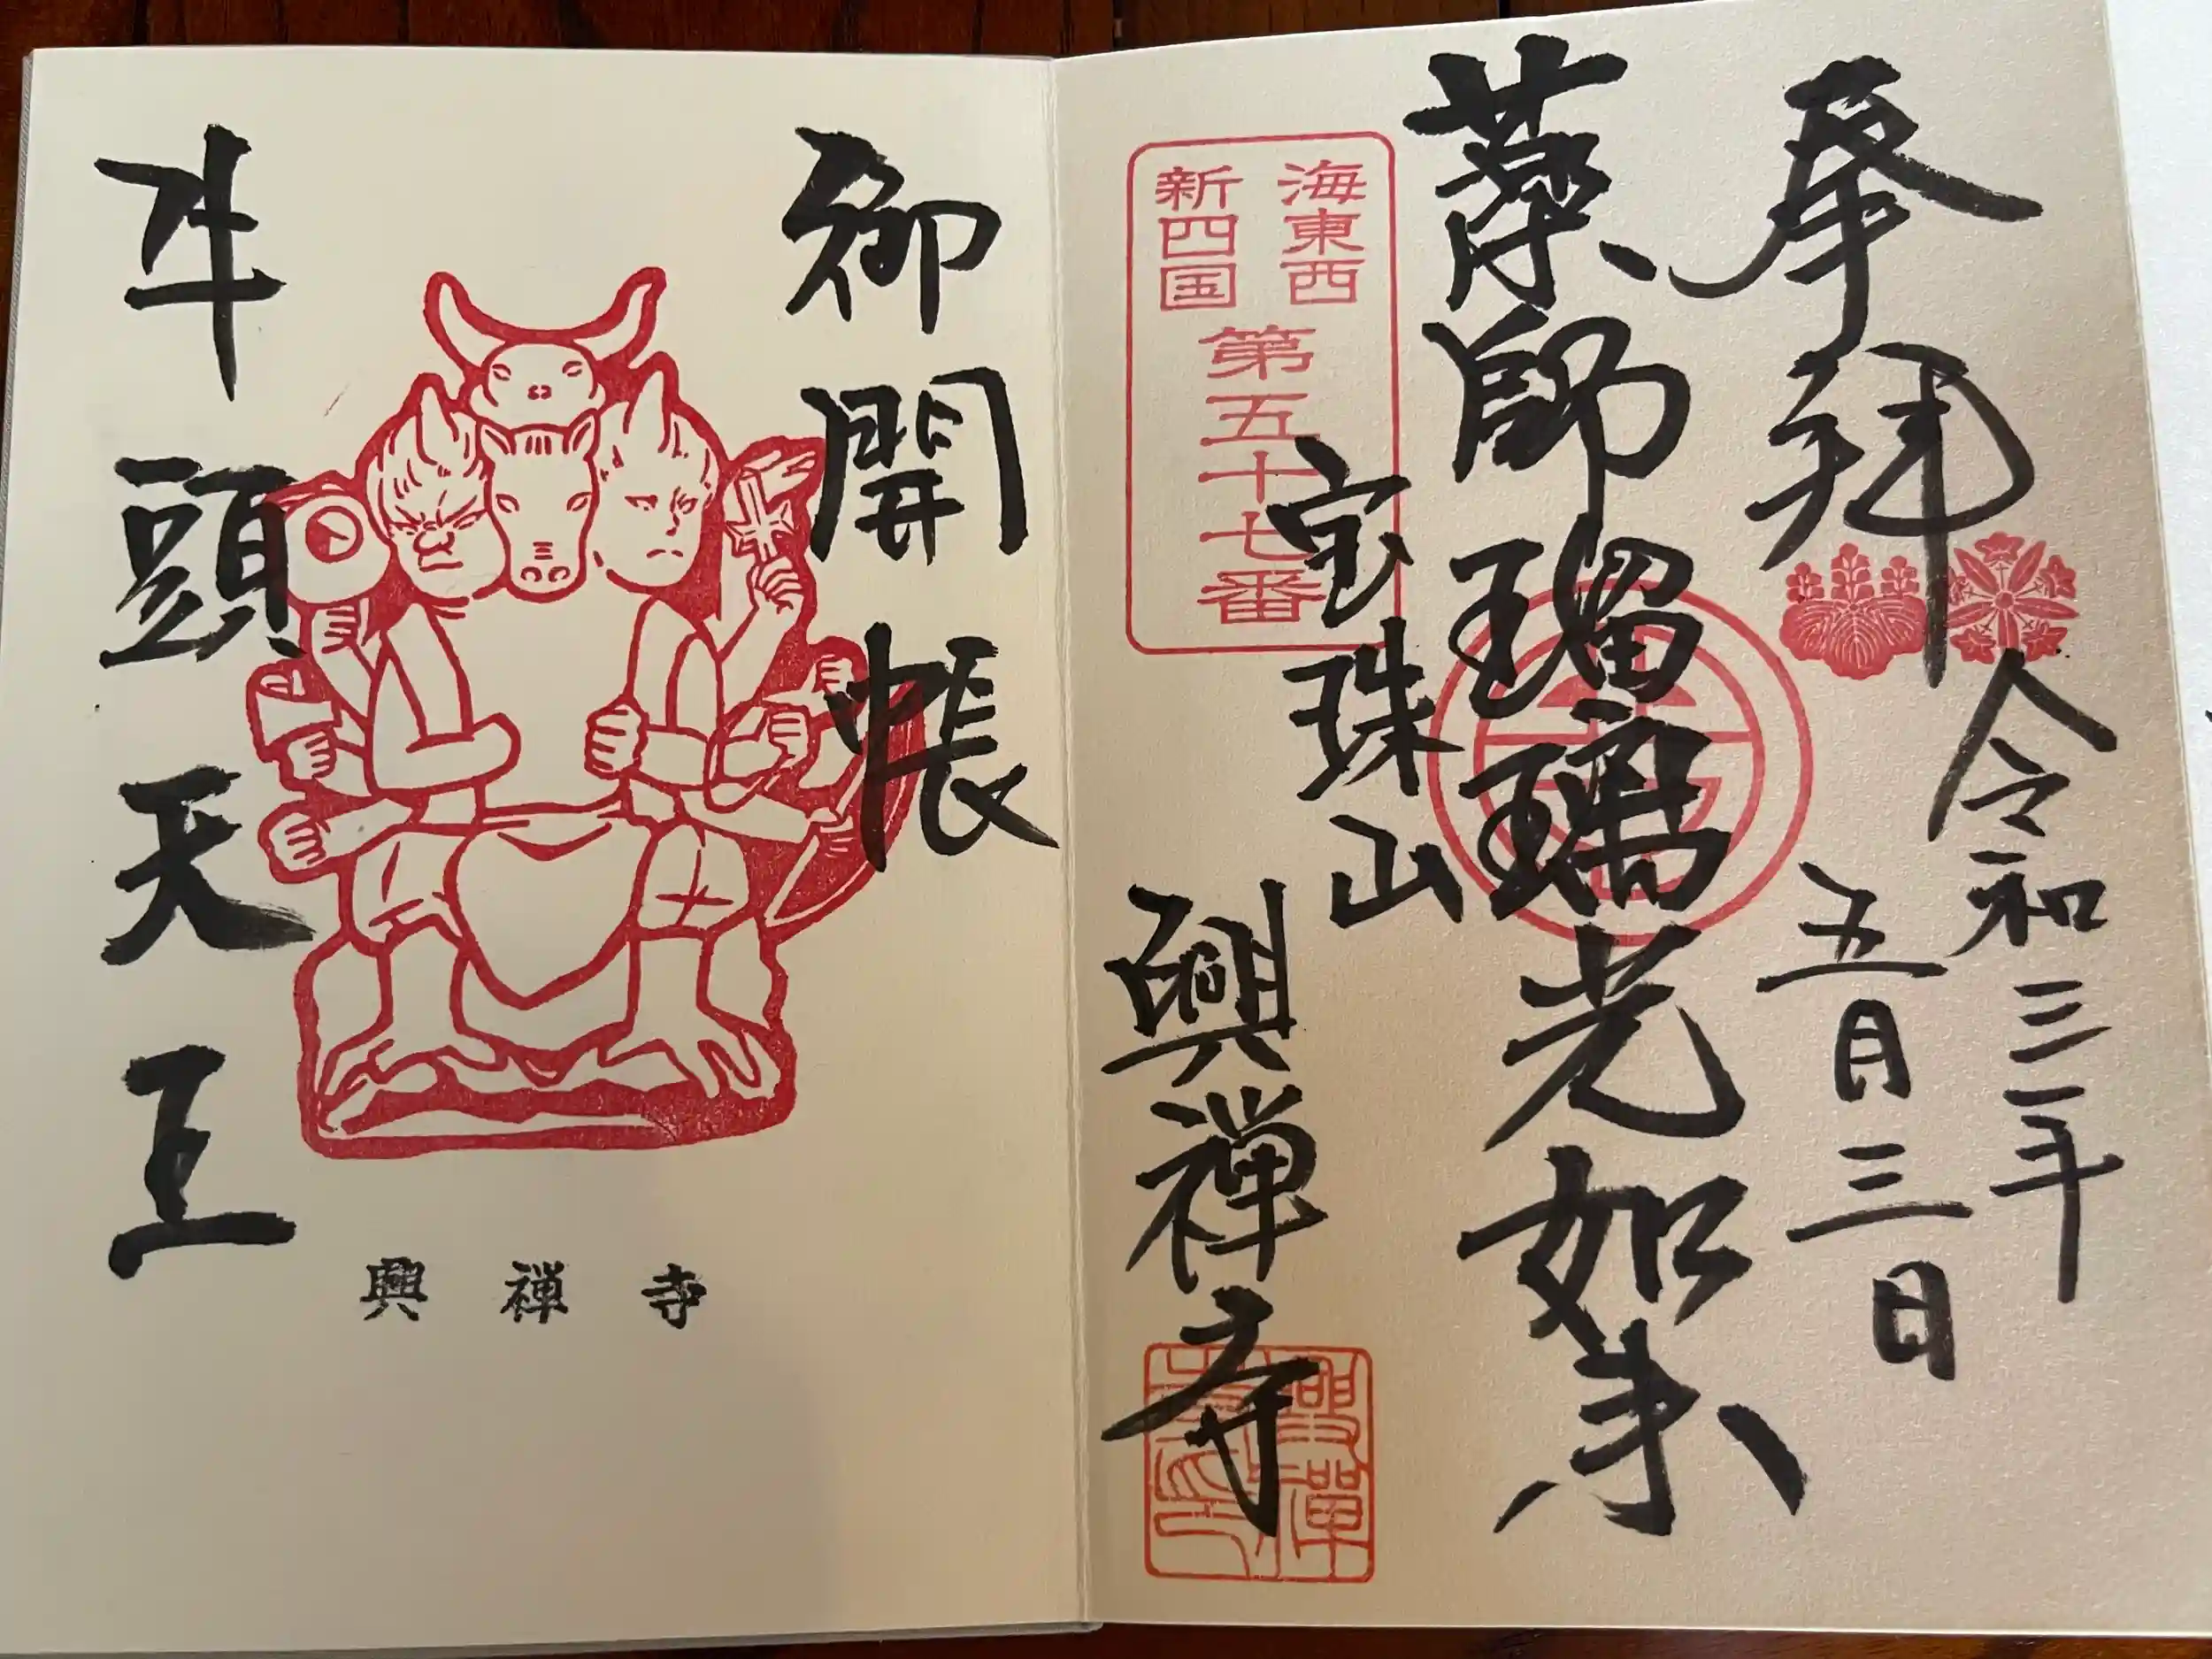 奉拝
令和三年
五月三日
薬師瑠璃光如来
宝珠山
興禅寺
海東西
新四国
第五十七番
御開帳
牛頭天王
興禅寺